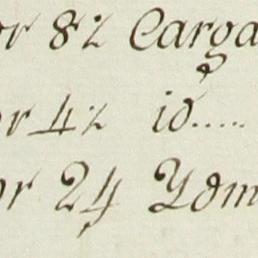 or 8½ Carga
or 4½ id.....
or 24 Ydm